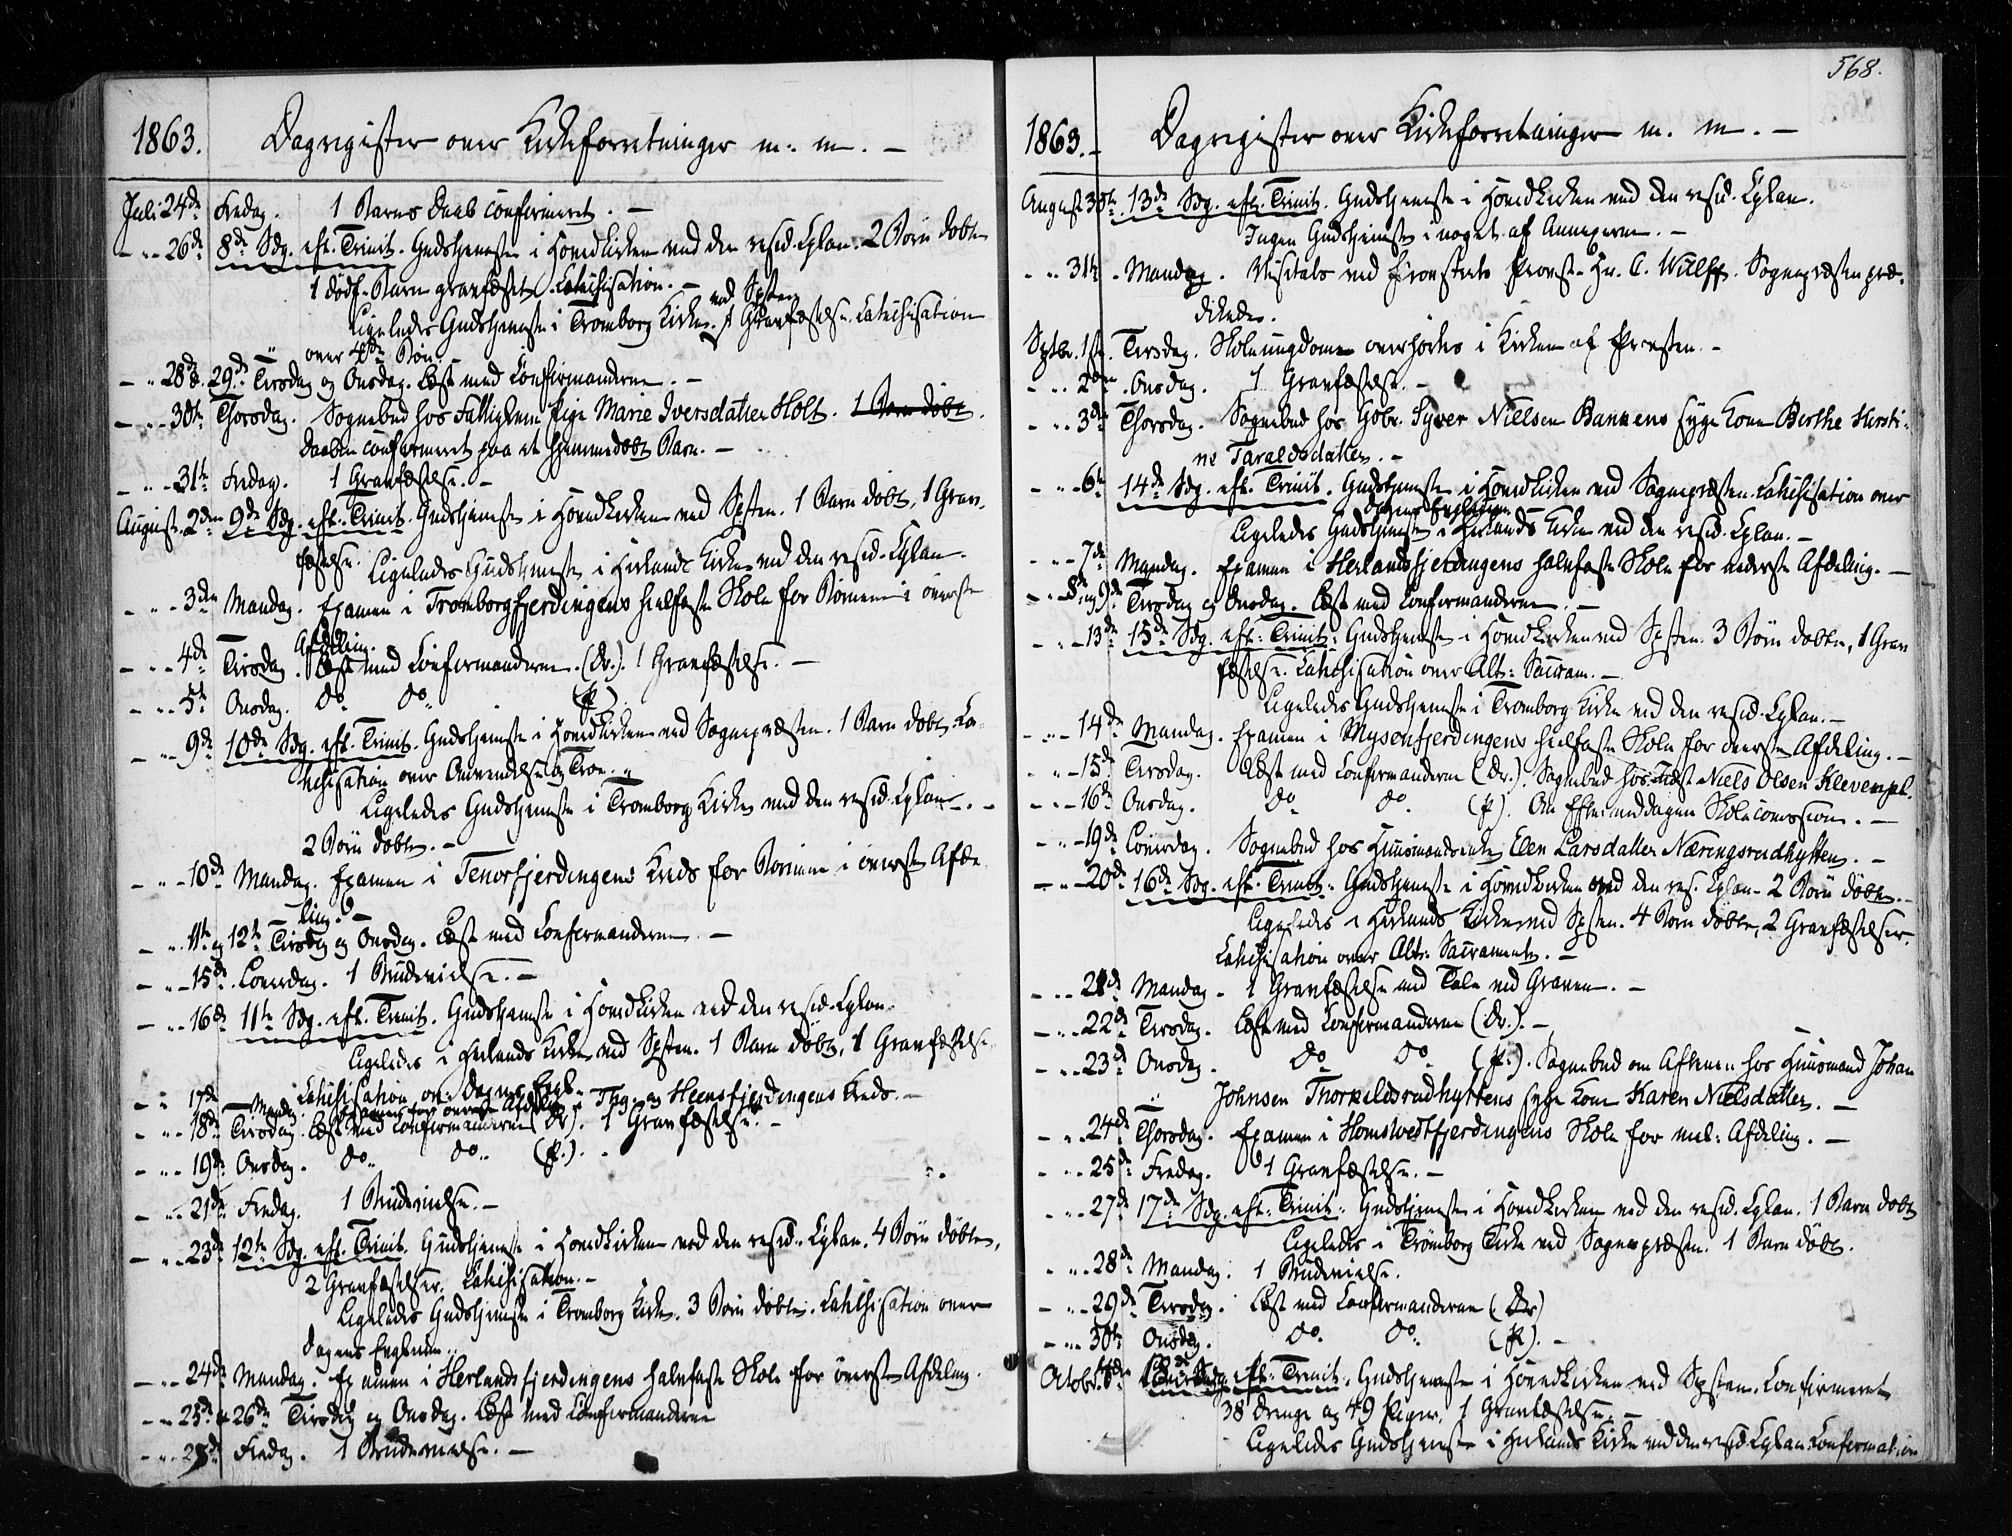 1863. Dagregister over Kirkeforretninger m. m. —
Juli 24de Fredag. 1 Barns Daab confirmeret. —
— „ - 26de 8de Sdg. eft. Trinit. Gudstjeneste i Hovedkirken ved den resid. Cplan. 2 Børn døbte
1 dødf. Barn gravfæstet. Catechisation. —
ved Spsten
Ligeledes Gudstjeneste i Tromborg Kirke. 1 Gravfæstelse. Catechisation
over 4de Bøn. —
— „ 28de. 29de Tirsdag og Onsdag. Læst med Confirmanderne. —
— „ - 30te Thorsdag. Sognebud hos Fattiglem Pige Marie Iversdatter Holt. 1 Barn døbt.
Daaben confirmeret paa et hjemmedøbt Barn. —
— „ - 31te Fredag. 1 Gravfæstelse. —
August. 2den 9de Sdg. eft. Trinit. Gudstjeneste i Hovedkirken ved Spsten. 1 Barn døbt, 1 Grav-
fæstelse. Ligeledes Gudstjeneste i Herlands Kirke ved den resid. Cplan.
- „ - 3die Mandag. Examen i Tromborgfjerdingens helfaste Skole for Børnene i øverste
Afdeling.
— „ - 4de Tirsdag. Læst med Confirmanderne. (Dr.). 1 Gravfæstelse. —
— „ - 5te Onsdag. do do (P.)
— „ - 9de 10de Sdg. eft. Trinit. Gudstjeneste i Hovedkirken ved Sognepræsten. 1 Barn døbt. Ca-
techisation over Omvendelse og Troe. „
Ligeledes Gudstjeneste i Tromborg Kirke ved den resid. Cplan. —
2 Børn døbte. —
— „ - 10de Mandag. Examen i Tenorfjerdingens Kreds for Børnene i øverste Afde-
ling. —
— „ 11te og 12te Tirsdag og Onsdag. Læst med Confirmanderne —
— „ - 15de Løverdag. 1 Brudevielse. —
— „ - 16de 11te Sdg. eft. Trinit. Gudstjeneste i Hovedkirken ved den resid. Cplan.
Ligeledes i Herlands Kirke ved Spsten. 1 Barn døbt, 1 Gravfæstelse.
Catechisation ov. Dagens Evgl.
— „ 17de Mandag. Examen for øverste Afdeling i Thg- og Heensfjerdingens Kreds. —
— „ - 18de Tirsdag. Læst med Confirmanderne (Dr). 1 Gravfæstelse. —
— „ - 19de Onsdag. do do (P.).
— „ - 21de Fredag. 1 Brudevielse. —
— „ - 23de 12te Sdg. eft. Trinit. Gudstjeneste i Hovedkirken ved den resid. Cplan. 4 Børn døbte,
2 Gravfæstelser. Catechisation. —
Ligeledes Gudstjeneste i Tromborg Kirke. 3 Børn døbte. Catechisation over
Dagens Evglium.
— „ - 24de Mandag. Examen i Herlandsfjerdingens halvfaste Skole for øverste Afdeling.
— „ 25de & 26de Tirsdag og Onsdag. Læst med Confirmanderne
— „ - 28de Fredag. 1 Brudevielse. —
568.
1863. — Dagregister over Kirkeforretninger m. m. —
August 30te. 13de Sdg. eft. Trinit. Gudstjeneste i Hovedkirken ved den resid. Cplan.
Ingen Gudstjeneste i noget af Annexerne. —
- „ 31te. Mandag. Visitats ved Provst Hr. C. Wulff. Sognepræsten præ-
dikede.
Septbr. 1ste. Tirsdag. Skoleungdommen overhørtes i Kirken af Provsten. —
- „ - 2den. Onsdag. 1 Gravfæstelse. —
- „ - 3die Thorsdag. Sognebud hos Gdbr. Syver Nielsen Bankens syge Kone Berthe Kirsti-
ne Taraldsdatter. —
- „ - 6te 14de Sdg. eft. Trinit. Gudstjeneste i Hovedkirken ved Sognepræsten. Catechisation over
Dagens Evglium
Ligeledes Gudstjeneste i Herlands Kirke ved den resid. Cplan. —
- „ - 7de Mandag. Examen i Herlandsfjerdingens halvfaste Skole for nederste Afdeling. —
- „ 8de og 9de Tirsdag og Onsdag. Læst med Confirmanderne. —
- „ - 13de 15de Sdg. eft. Trinit. Gudstjeneste i Hovedkirken ved Spsten. 3 Børn døbte, 1 Grav
fæstelse. Catechisation over Alt. Sacram. —
Ligeledes Gudstjeneste i Tromborg Kirke ved den resid. Cplan. —
- „ - 14de Mandag. Examen i Mysenfjerdingens helfaste Skole for øverste Afdeling. —
- „ - 15de Tirsdag. Læst med Confirmanderne (Dr.). Sognebud hos Niels Olsen Klevenpl.
- „ - 16de Onsdag. do do (P). Om Eftermiddagen Skolecomission. —
- „ - 19de Løverdag. Sognebud hos Huusmandsenke Elen Larsdatter Næringsrudhytten. —
— „ - 20de 16de Sdg. eft. Trinit. Gudstjeneste i Hovedkirken ved den res. Cplan. 2 Børn døbte. —
Ligeledes i Herlands Kirke ved Spsten. 4 Børn døbte, 2 Gravfæstelser.
Catechisation over Alt. Sacramente. —
— „ - 21de Mandag. 1 Gravfæstelse med Tale ved Graven. —
— „ - 22de Tirsdag. Læst med Confirmanderne (Dr.). —
— „ - 23de Onsdag. do do (P.). Sognebud om Aftenen hos Huusmand Johan
Johnsen Thorkildsrudhyttens syge Kone Karen Nielsdatter. —
— „ - 24de Thorsdag. Examen i Homstvedtfjerdingens Skole for ned. Afdeling. —
- „ - 25de Fredag. 1 Gravfæstelse. —
- „ - 27de 17de Sdg. eft. Trinit. Gudstjeneste i Hovedkirken ved den resid. Cplan. 1 Barn døbt
Ligeledes i Tromborg Kirke ved Sognepræsten. 1 Barn døbt.
- „ - 28de Mandag. 1 Brudevielse.
— „ - 29de Tirsdag. Læst med Confirmanderne (Dr)
— „ - 30te Onsdag. do do (P). —
Octobr. 4de eft. Trinit. Gudstjeneste i Hovedkirken ved Spsten. Confirmeret
38 Drenge og 49 Piger. 1 Gravfæstelse. —
Ligeledes Gudstjeneste i Herlands Kirke ved den resid. Cplan. Confirmation